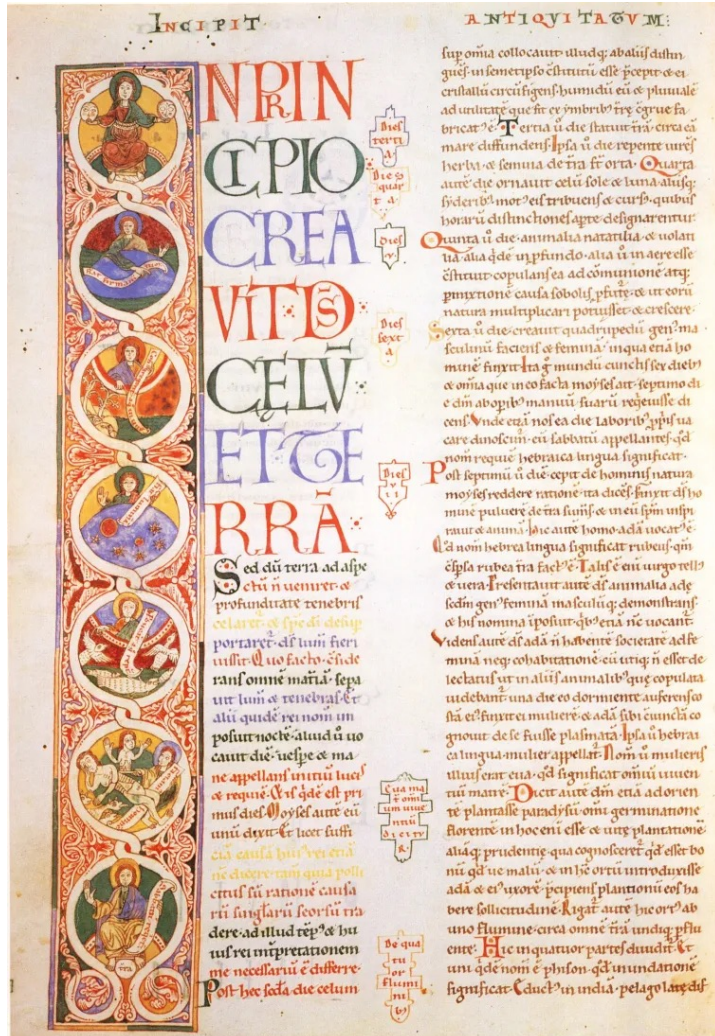 INCIPIT
ANTIQUITATUM:
N PRIN
CIPIO
CREA
VIT DS̄
CELV̄
ET TE
RRĀ
Sed dū terra ad aspe
ctū n̄ veniret &
profunditate tenebris
celaret &
portaret ds lum fieri
iussit Quo facto
rans omnē
& tenebras Et
alii quidē rei nom im
posuit nocte aliud ū uo
cauit die uespe & ma
ne appellans initiū lucis
& requie Et is qdē est pri
mus dies Moyses autē eū
unū dixit Et licet suffi
causā huius rei etiā
nc dicere tam quia polli
citus sū rationē causa
seorsū tra
dere ad illud temp & hu
ius rei interpretationem
me necessariū ē differre
Post hec scda die celum
Dies
terti
a
Dies
quar
ta
Dies
v
Dies
sext
a
Dies
vii
Eua ma
omi
um uiue
ntiū
dicitur
De qua
tu
or
flumi
ni
sup omia collocauit illud q ab aliis distin
guens in semetipso cstitutū esse pcepit & ei
cristallū circūfigens humidū eū & pluuiale
ad utilitatē que fit ex ymbrib tre
bricat ē Tertia ū die statuit trā circa eā
mare diffundens Ipsa ū die repente uires
herba & semina de tra st orta Quarta
autē die ornauit celū sole & luna aliisq
syderib mot eis tribuens & curs quibus
horarū distinctiones apte designarentur
Quinta ū die animalia natatilia & uolati
lia alia qdē in pfundo alia ū in aere esse
cstituit copulans ea ad cōmunione atq
pmixtione causa sobolis & ut eorū
natura multiplicari potuisset & crescere
Sexta ū die creauit quadrupedū gen ma
sculinū faciens & feminā in qua etiā ho
minē finxit Ita g mundū cunctis sex dieb
& omia que in eo facta moyses ait septimo di
e dm ab operib manuū suarū requieuisse di
cens Unde etiā nos ea die laborib ppiis ua
care dinoscim eū sabbatū appellantes qd
nom requiē hebraica lingua significat
Post septimū ū die cepit de hominis natura
moyses reddere rationē ita dicens finxit ds ho
mine puluere de tra sums & in eū spm inspi
rauit & animā Hic autē homo adā uocat ē
Qd nom hebrea lingua significat rubeus qm
cspsa rubea tra fact ē Talis ē eni uirgo tell
& uera Presentauit autē ds animalia ade
scdm gen feminā masculūq demonstrans
& his nomina iposuit qb etiā nc uocant
Videns autē ds adā n̄ habente societatē ad fe
minā neq cohabitationē eū utiq n̄ esset de
lectatus ut in aliis animalib que copulata
uidebant una die eo dormiente auferens co
stā ei finxit ei mulierē & adā sibi cūncta co
gnouit de se fuisse plasmatā Ipsa ū hebrai
ca lingua mulier appellat Nom ū mulieris
illius erat eua qd significat omiū uiuen
tiū matrē Dicit autē dm etiā ad orien
te plantasse paradysū omi germinatione
florente in hoc eni esse & uite plantationē
aliāq prudentie qua cognosceret qd esset bo
nū qd ue malū & in hc ortū introduxisse
adā & ei uxorē pcipiens plantionū eos ha
bere sollicitudinē Rigat autē hic ort ab
uno flumine circa omne trā undiq pflu
ente Hic in quatuor partes diuidit Et
uni qdē nom ē phison qd inundatione
significat Educt in indiā pelago late dif